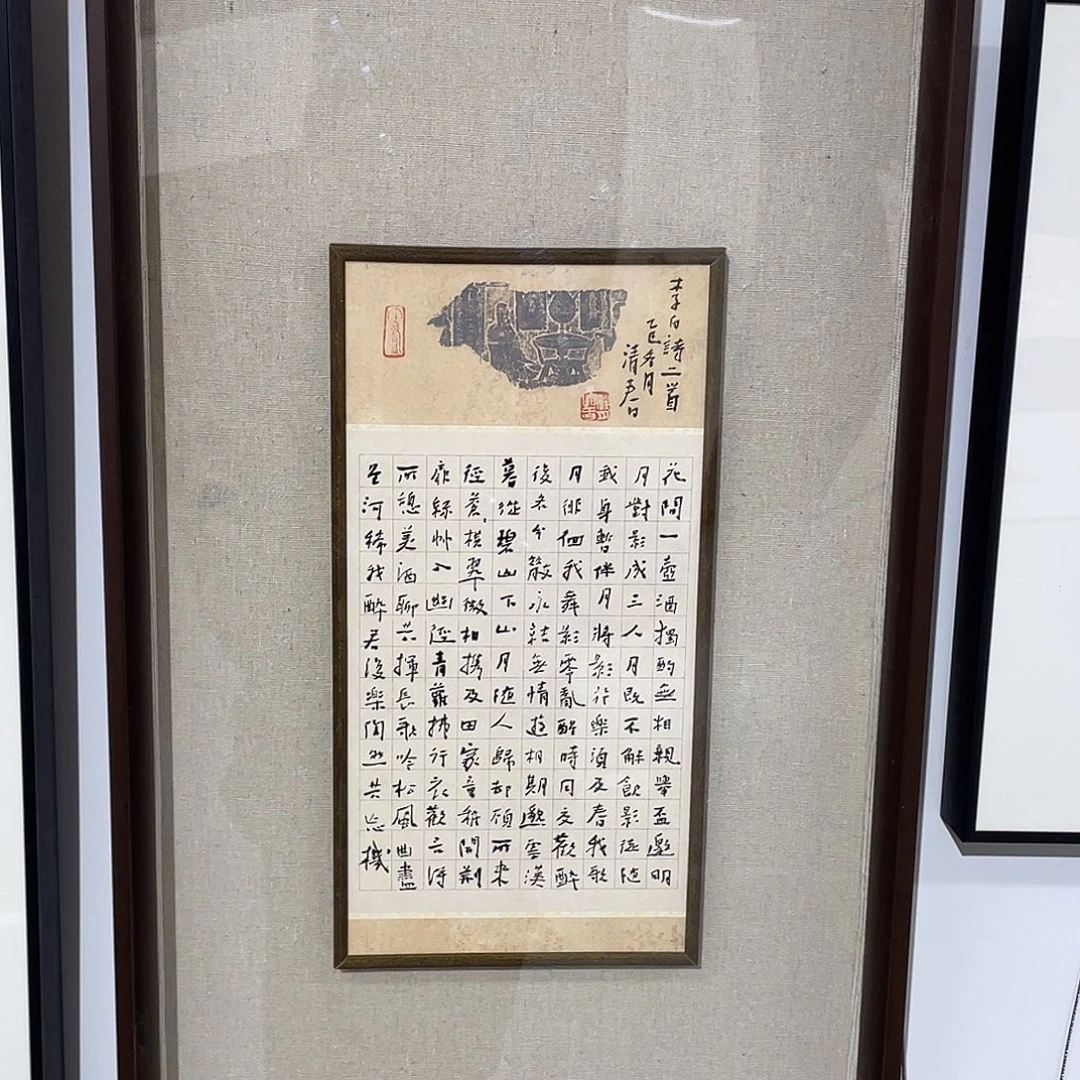 李白詩二首
乙巳冬月
清
花間一壺酒獨酌無相親舉盃邀明
月對影成三人月既不解飲影徒隨
我身暫伴月將影行樂須及春我歌
月徘徊我舞影零亂醒時同交歡醉
後各分散永結無情遊相期邈雲漢
暮從碧山下山月隨人歸却顧所來
徑蒼〻橫翠微相携及田家童稚開荊
扉綠竹入幽徑青蘿拂行衣歡言得
所憩美酒聊共揮長歌吟松風曲盡
星河稀我醉君復樂陶然共忘機